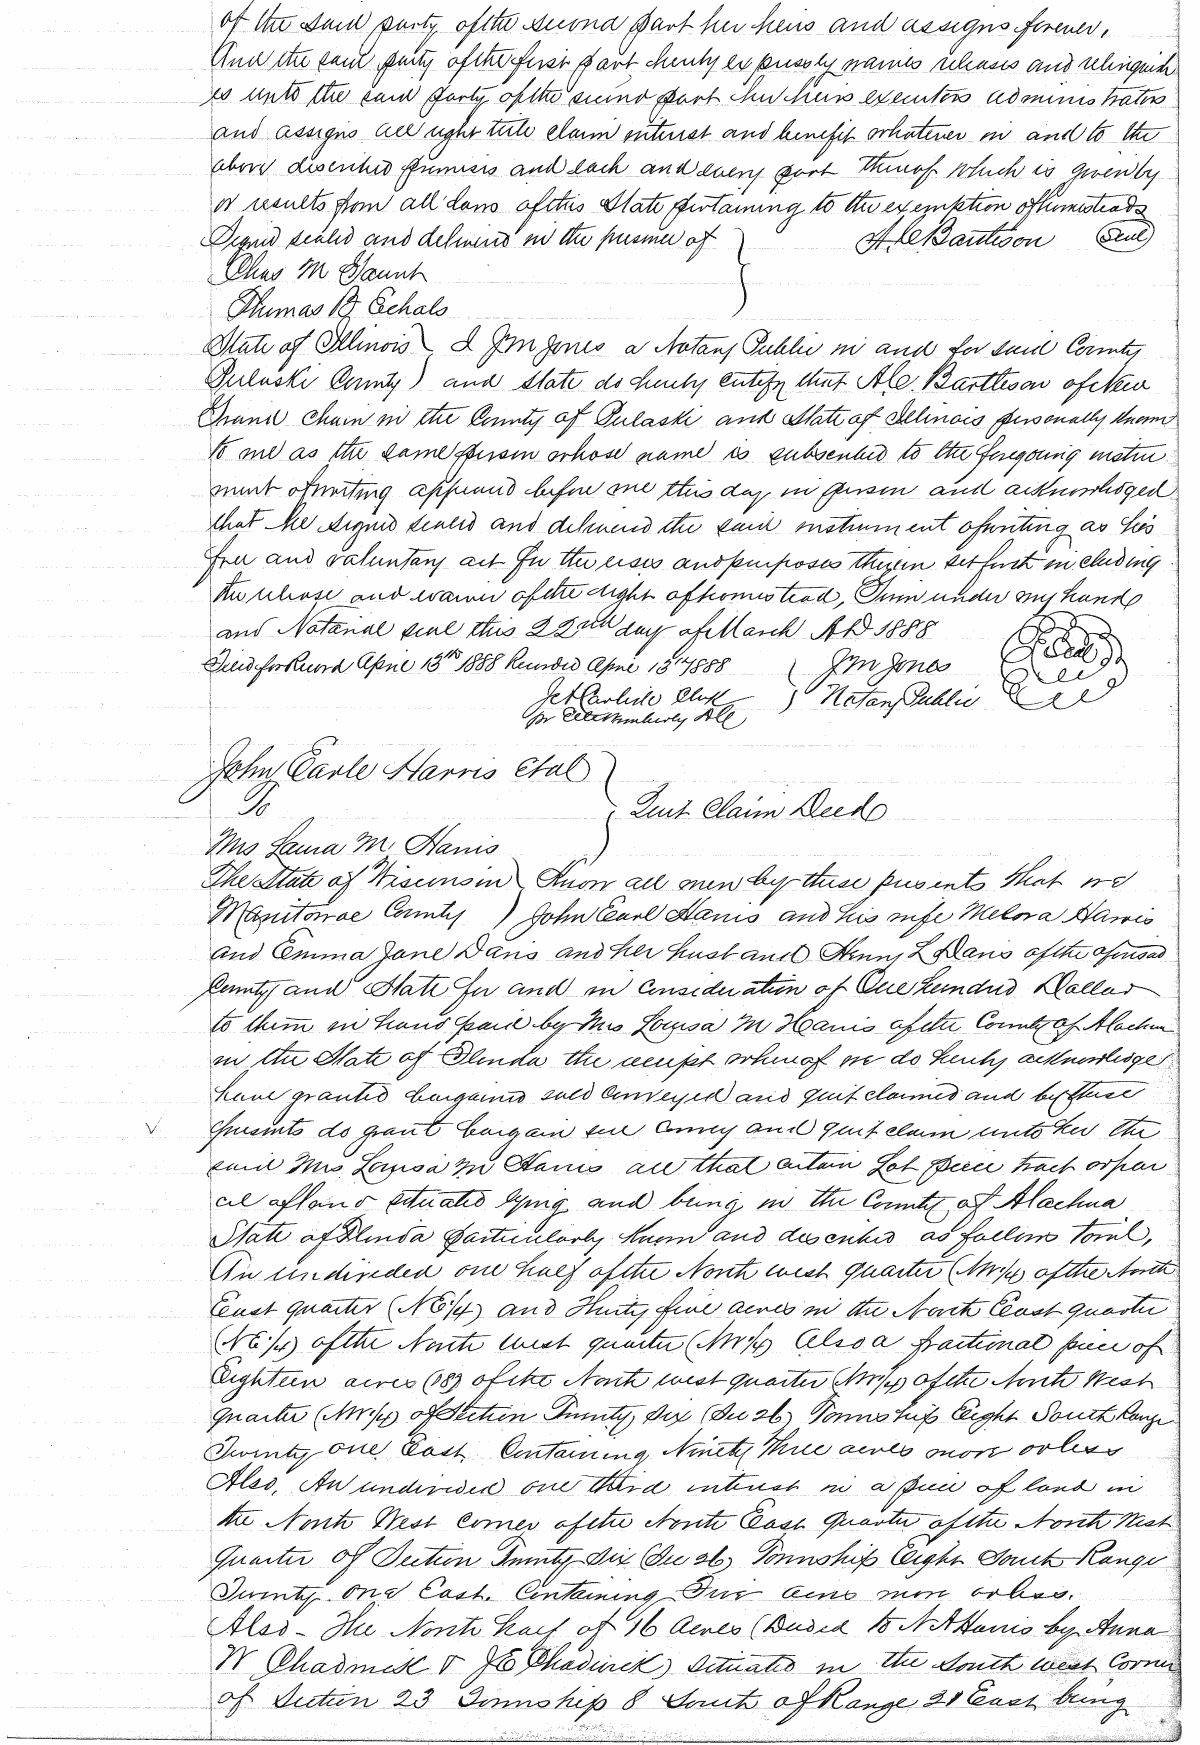 of the said party of the second part her heirs and assigns forever,
And the said party of the first part hereby expressly waives releases and relinquish
es unto the said party of the second part her heirs executors administrators
and assigns all right title claim interest and benefit whatever in and to the
above described premises and each and every part thereof which is given by
or results from all laws of this State pertaining to the exemption of homesteads
Signed sealed and delivered in the presence of A C Bartleson (Seal)
Chas M Gaunt
Thomas B Echals
State of Illinois ) I J M Jones a Notary Public in and for said County
Pulaski County ) and State do hereby certify that A C. Bartleson of New
Grand Chain in the County of Pulaski and State of Illinois personally known
to me as the same person whose name is subscribed to the foregoing instru
ment of writing appeared before me this day in person and acknowledged
that he signed sealed and delivered the said instrument of writing as his
free and voluntary act for the uses and purposes therein set forth including
the release and waiver of the right of homestead, Given under my hand
and Notarial seal this 22nd day of March A D 1888
Filed for Record April 13th 1888 Recorded April 13th 1888 ( J M Jones (Seal)
J A Carlisle Clerk ) Notary Public
pr Wimberly D C
John Earle Harris et al )
To ) Quit Claim Deed
Mrs Laura M Harris )
The State of Wisconsin ) Know all men by these presents that we
Manitowoc County ) John Earl Harris and his wife Melora Harris
and Emma Jane Davis and her husband Henry L Davis of the aforesaid
County and State for and in consideration of One hundred Dollars
to them in hand paid by Mrs Louisa M Harris of the County of Alachua
in the State of Florida the receipt whereof we do hereby acknowledge
have granted bargained sold conveyed and quit claimed and by these
presents do grant bargain sell convey and quit claim unto her the
said Mrs Louisa M Harris all that certain Lot piece tract or par
cel of land situated lying and being in the County of Alachua
State of Florida particularly known and described as follows towit,
An undivided one half of the North west quarter (NW1/4) of the North
East quarter (NE1/4) and Thirty five acres in the North East quarter
(NE1/4) of the North west quarter (NW1/4) Also a fractional piece of
Eighteen acres (18) of the North west quarter (NW1/4) of the North West
quarter (NW1/4) of Section Twenty Six (Sec 26) Township Eight South Range
Twenty one East Containing Ninety three acres more or less
Also, An undivided one third interest in a piece of land in
the North West corner of the North East Quarter of the North West
Quarter of Section Twenty Six (Sec 26) Township Eight South Range
Twenty one East. Containing Five acres more or less.
Also - The North half of 16 Acres (Deeded to N A Harris by Anna
W Chadwick & J E Chadwick) situated in the South west Corner
of Section 23 Township 8 South of Range 21 East being